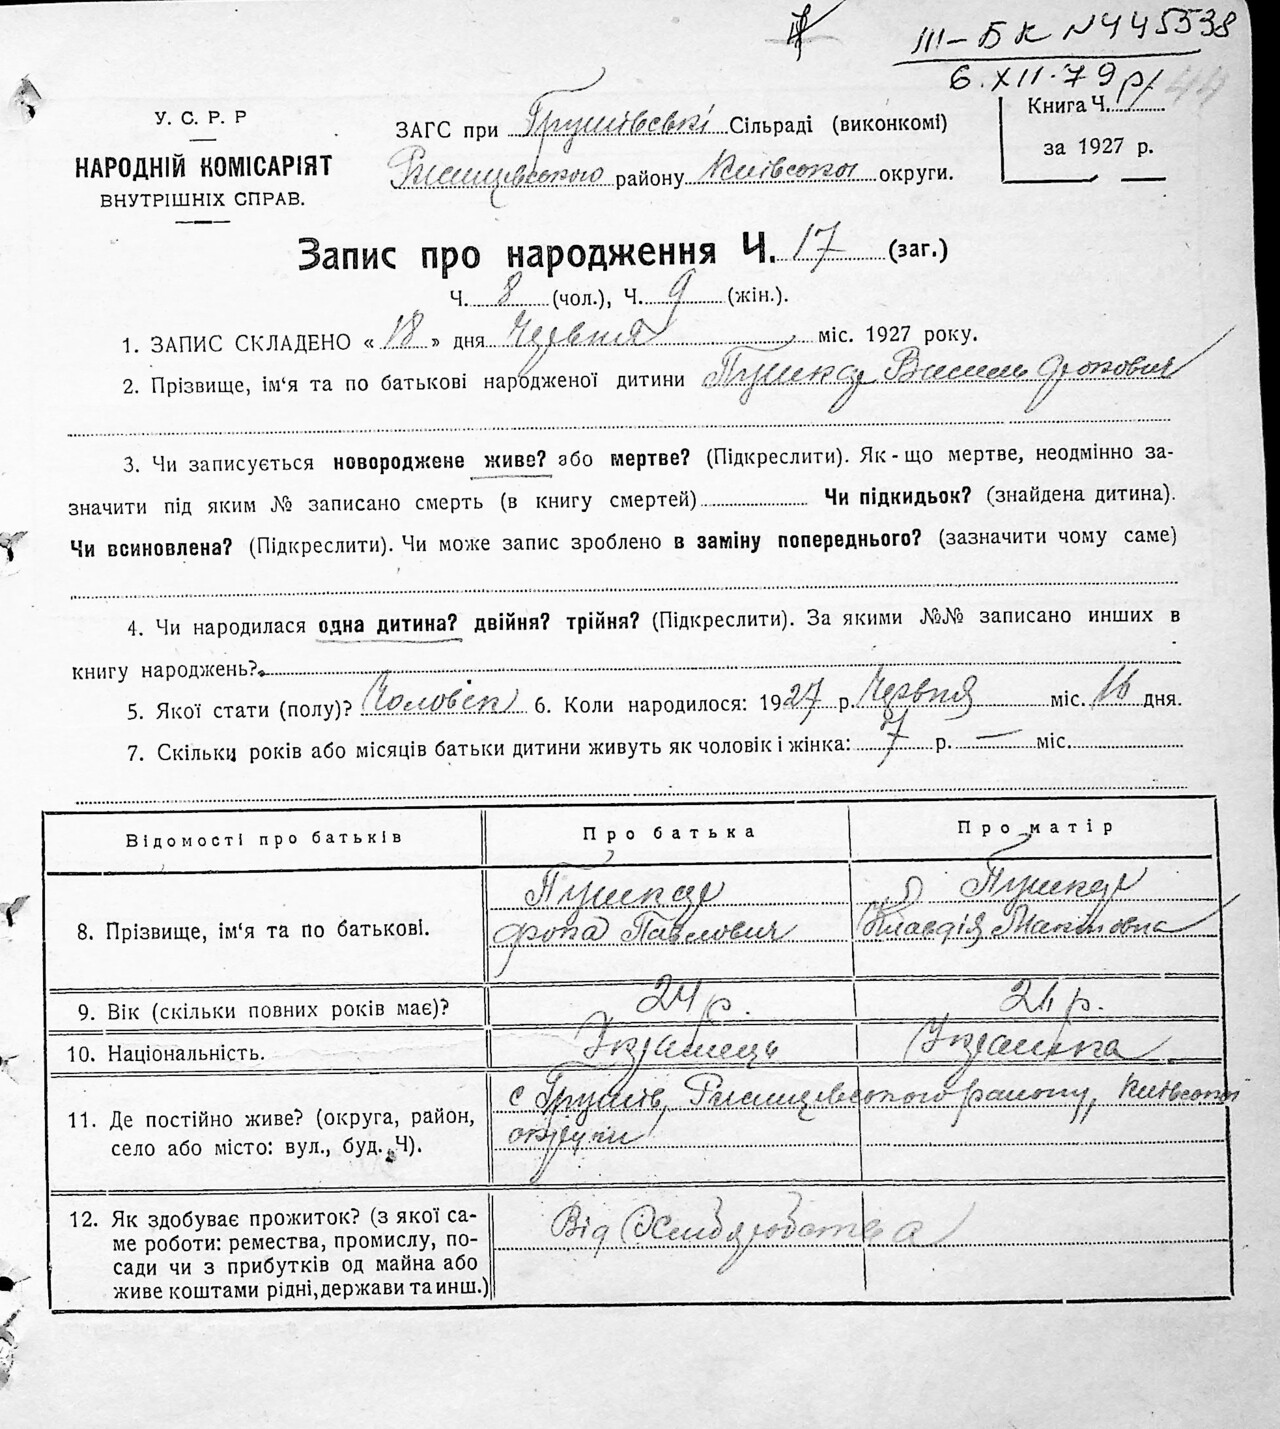 ІІІ-БК №445538
6.XII.79р. 44
У. С. Р. Р
НАРОДНІЙ КОМІСАРІЯТ
ВНУТРІШНІХ СПРАВ.
ЗАГС при Грушівські Сільраді (виконкомі)
Ржищівського району Київської округи.
Книга Ч.
за 1927 р.
Запис про народження Ч. 17 (заг.)
Ч. 8 (чол.), Ч. 9 (жін.).
1. ЗАПИС СКЛАДЕНО « 18 » дня Червня міс. 1927 року.
2. Прізвище, ім'я та по батькові народженої дитини Пушкар Василь Фокович
3. Чи записується новороджене живе? або мертве? (Підкреслити). Як-що мертве, неодмінно за-
значити під яким № записано смерть (в книгу смертей) Чи підкидьок? (знайдена дитина).
Чи всиновлена? (Підкреслити). Чи може запис зроблено в заміну попереднього? (зазначити чому саме)
4. Чи народилася одна дитина? двійня? трійня? (Підкреслити). За якими №№ записано инших в
книгу народжень?
5. Якої стати (полу)? Чоловік 6. Коли народилося: 1927 р. Червня міс. 16 дня.
7. Скільки років або місяців батьки дитини живуть як чоловік і жінка: 7 р. — міс.
Відомості про батьків Про батька Про матір
8. Прізвище, ім'я та по батькові. Пушкар Фока Павлович Пушкар Клавдія Макімовна
9. Вік (скільки повних років має)? 24 р. 24 р.
10. Національність. Українець Українка
11. Де постійно живе? (округа, район, с Грушів, Ржищівського району, Київської
село або місто: вул., буд. Ч). округи
12. Як здобуває прожиток? (з якої са- Від Хліборобства
ме роботи: ремества, промислу, по-
сади чи з прибутків од майна або
живе коштами рідні, держави та инш.)